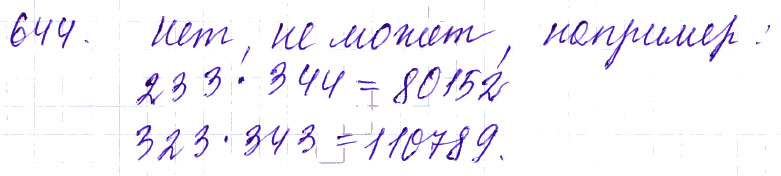 644. Нет, не может, например:
233 · 344 = 80152
323 · 343 = 110789.